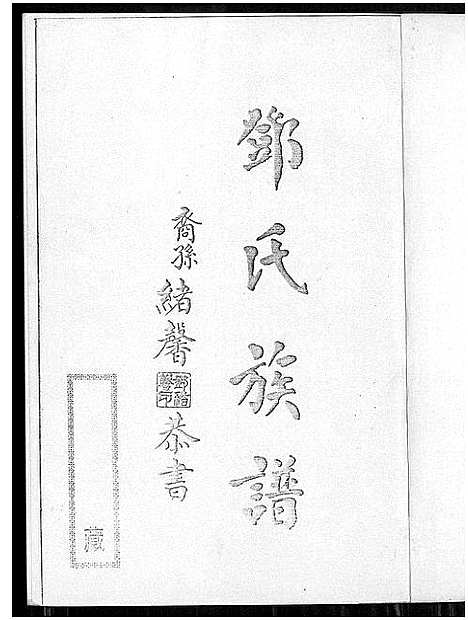 鄧氏族譜
裔孫緒馨恭書
藏